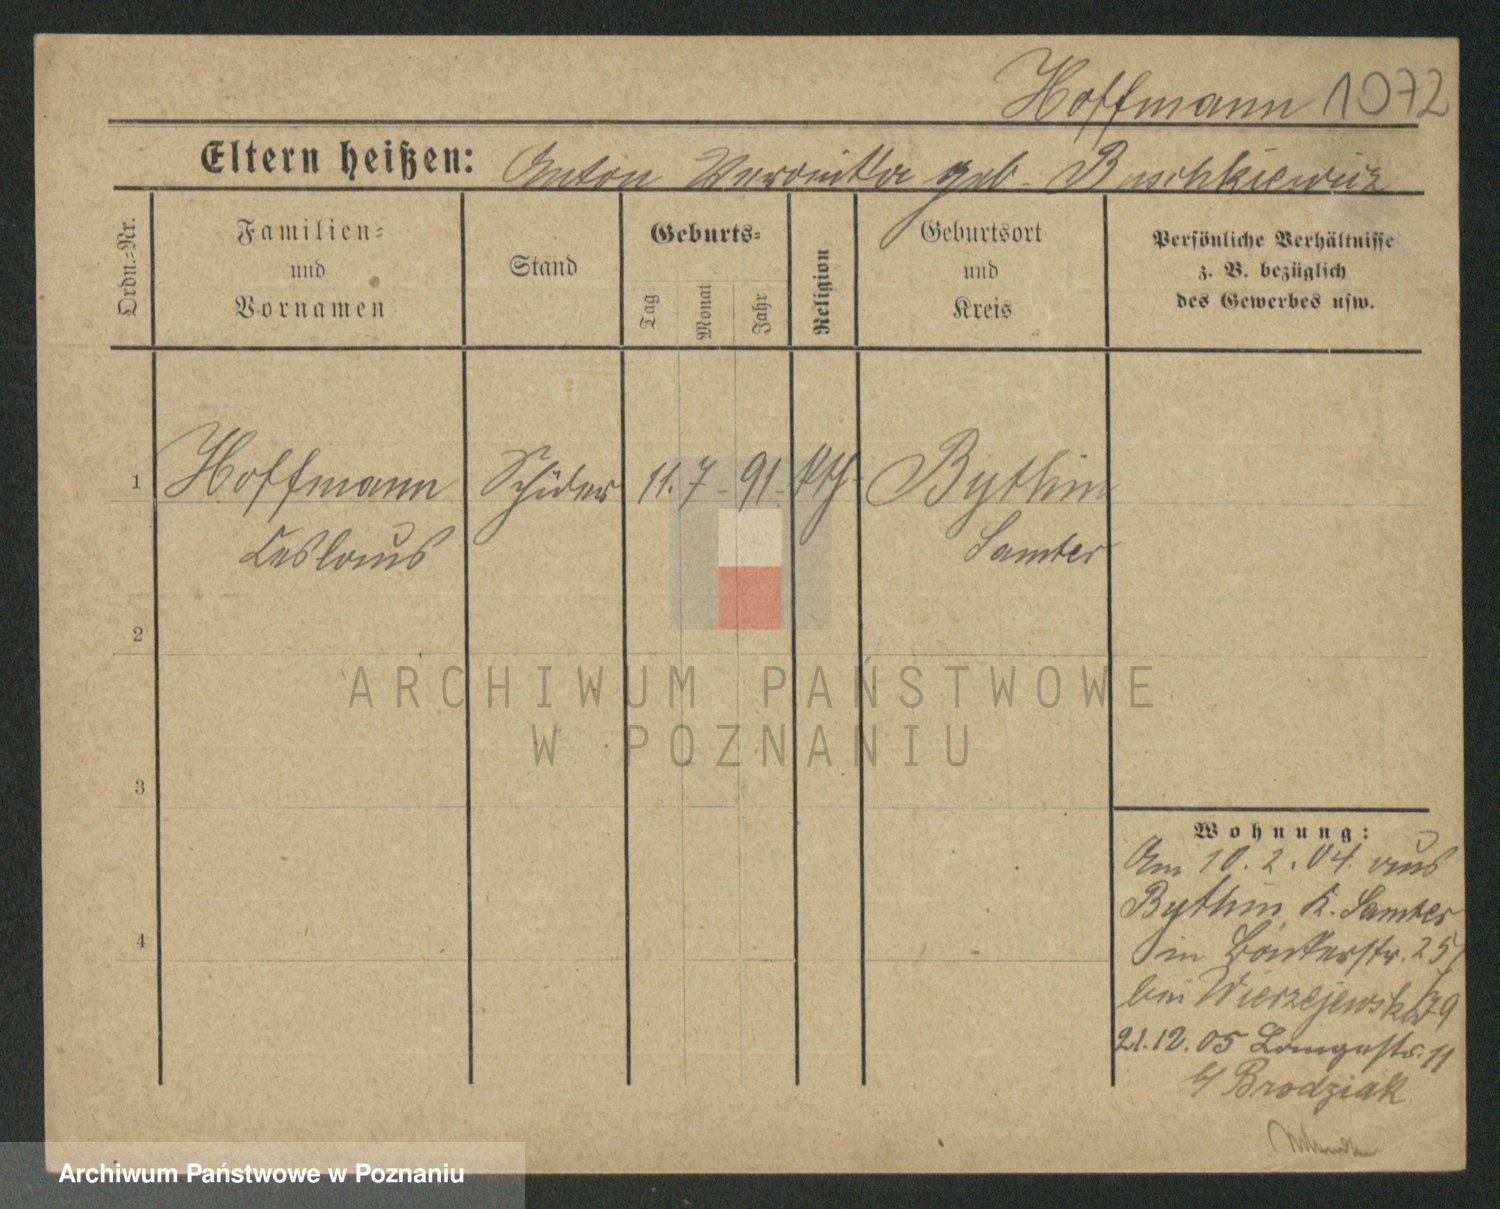 Hoffmann 1072
Eltern heißen: Anton Veronika geb. Buschkiewicz
Ordn.-Nr.
Familien-
und
Vornamen
Stand
Geburts-
Tag
Monat
Jahr
Religion
Geburtsort
und
Kreis
Persönliche Verhältnisse
z. B. bezüglich
des Gewerbes usw.
1 Hoffmann Schüler 11. 7. 91. kth. Bythin
Ceslaus Samter
2
3
4
Wohnung:
Am 10. 2. 04. aus
Bythin K. Samter
in Bäckerstr. 25
bei Wierzejewski
21.12.05 Langestr. 11
b/ Brodziak
ARCHIWUM PAŃSTWOWE
W POZNANIU
Archiwum Państwowe w Poznaniu